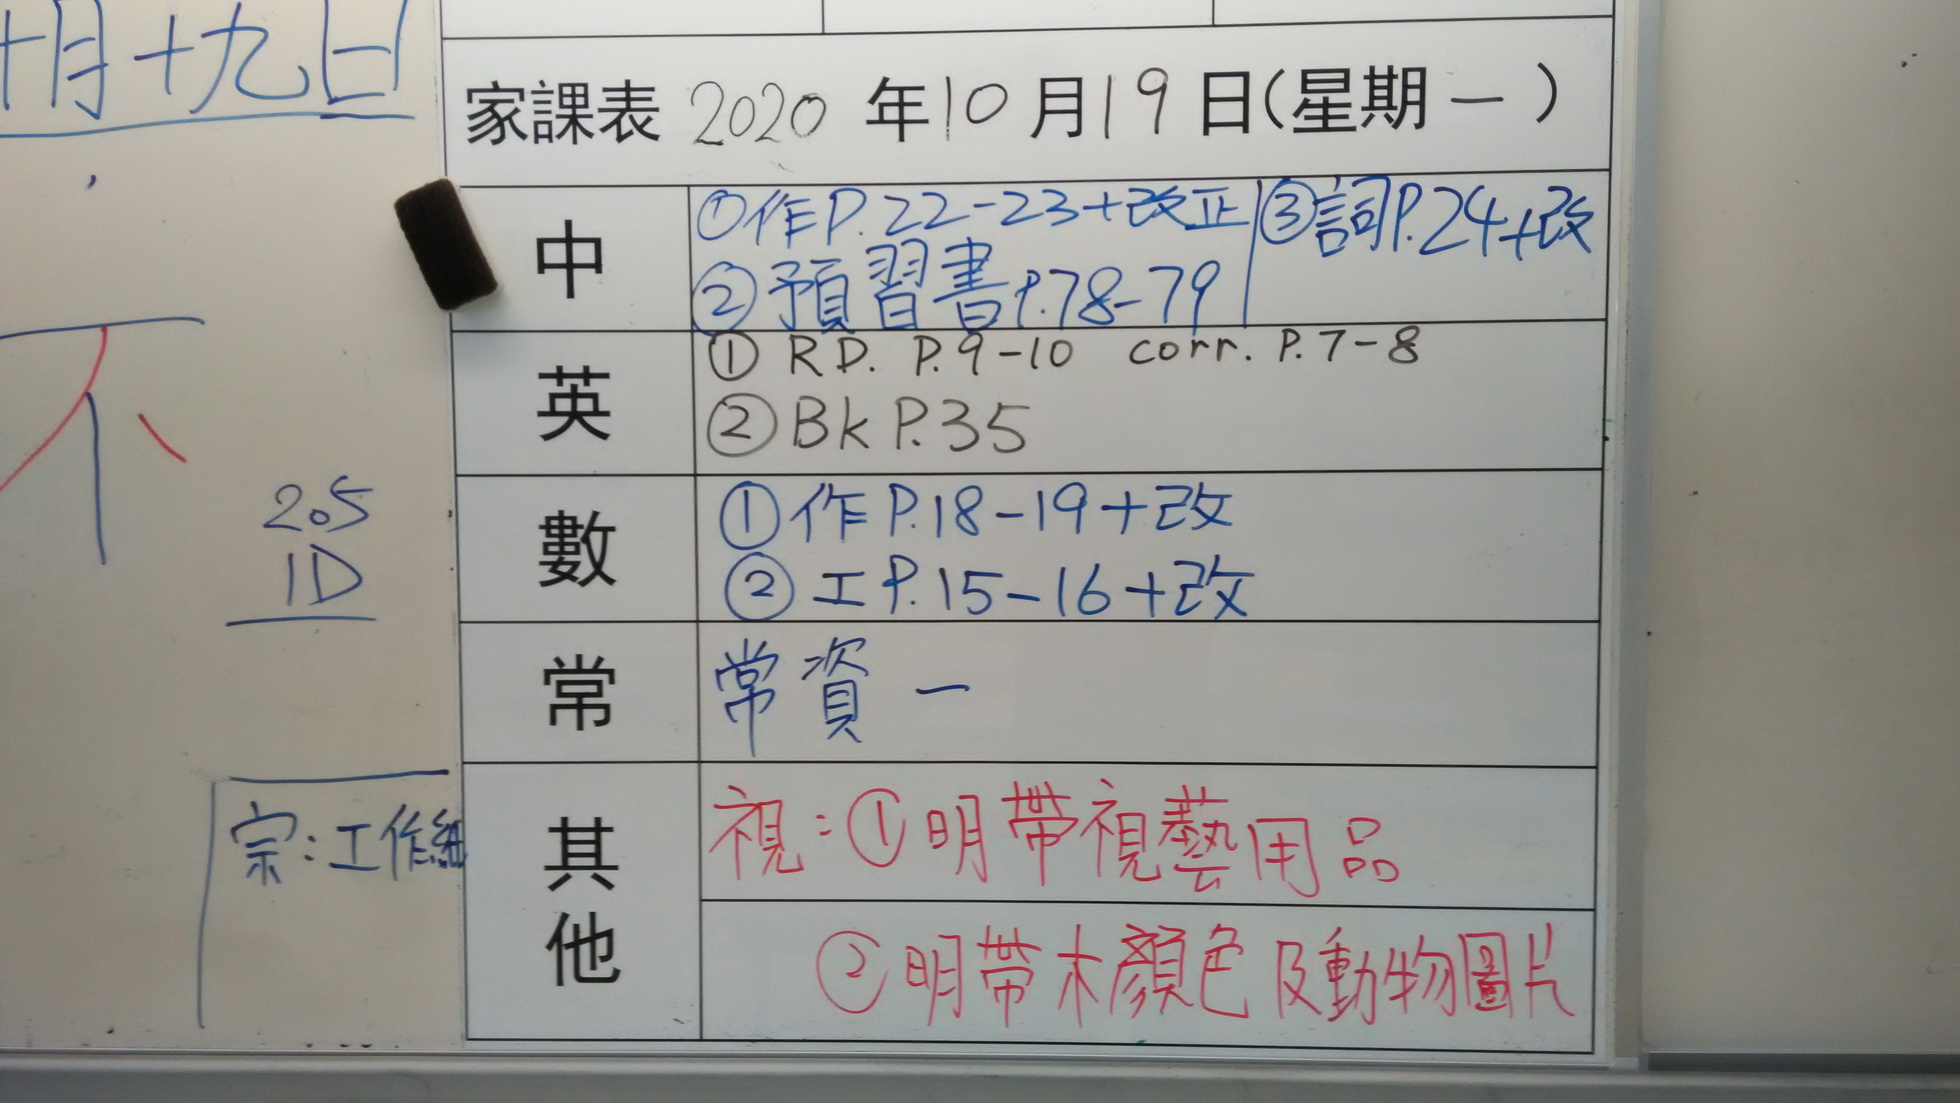 十月十九日
不
205
1D
宗:工作紙
家課表 2020 年10月19日(星期一)
中
①作P.22-23+改正
②預習書P.78-79
③詞P.24+改
英
① RD. P.9-10 corr. P.7-8
② Bk P.35
數
①作P.18-19+改
②工P.15-16+改
常
常資一
其他
視:①明帶視藝用品
②明帶木顏色及動物圖片